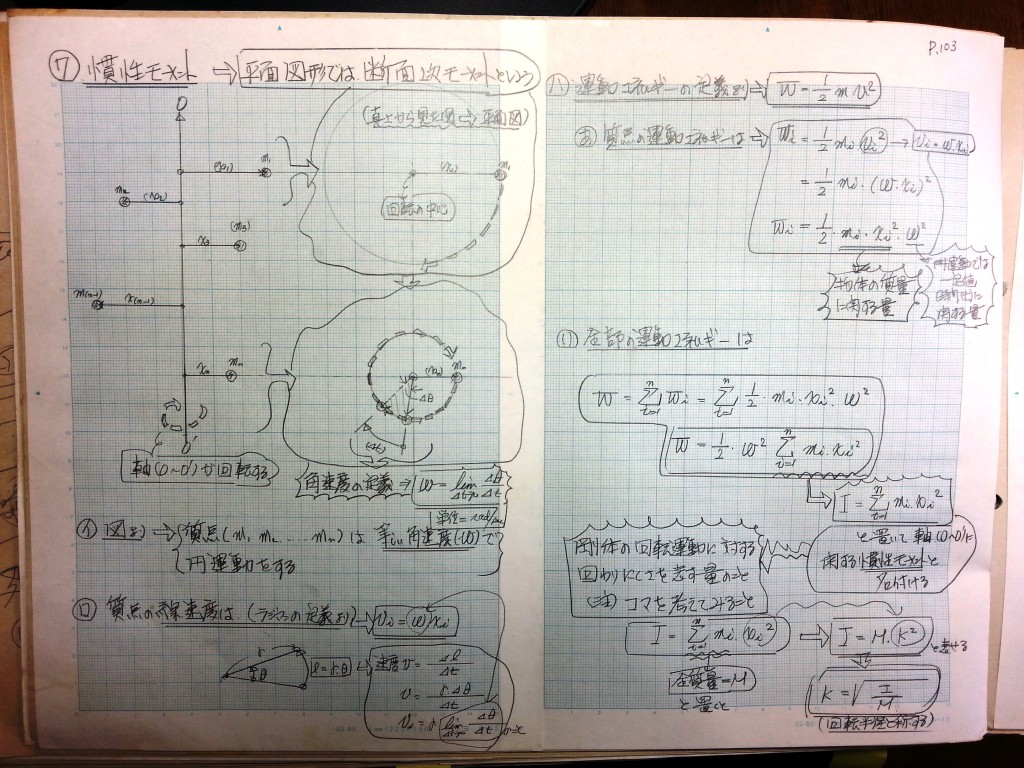 P.103
⑦ 慣性モーメント ⇒ 平面図形では断面2次モーメントという
(真上から見た図 ⇒ 平面図)
O
(x₁) m₁
m₂ (x₂)
(m₃)
x₃
m(n-1) x(n-1)
xn mn
O'
軸(O~O')が回転する
(x₁) m₁
回転の中心
(xn) mn
Δθ
角速度の定義 ⇒ ω = lim Δt→0 Δθ/Δt
単位 = rad/sec
㋑ 図より → 質点(m₁ m₂ … mn)は 等しい角速度(ω)で
円運動をする
㋺ 質点の線速度は (ラジアンの定義より) → vi = ω xi
r
θ
l = r・θ → 速度 v = Δl/Δt
v = r・Δθ/Δt
lim Δt→0 Δθ/Δt
㋩ 運動エネルギーの定義より → W = 1/2 m v²
あ 質点の運動エネルギーは → Wi = 1/2 mi (vi²) → vi = ω・xi
= 1/2 mi・(ω・xi)²
Wi = 1/2・mi・xi²・ω²
物体の質量
に関する量
円運動では
一定値
関する量
い 全部の運動エネルギーは
W = Σ(i=1→n) Wi = Σ(i=1→n) 1/2・mi・xi²・ω²
W = 1/2・ω² Σ(i=1→n) mi・xi²
I = Σ(i=1→n) mi・xi²
と置いて 軸(O~O')に
関する慣性モーメントと
名付ける
剛体の回転運動に対する
回わりにくさを表す量のこと
(注) コマを考えてみること
I = Σ(i=1→n) mi・(xi²) → I = M・K² と表せる
全質量=M
と置くと
K = √(I/M)
(回転半径と称する)